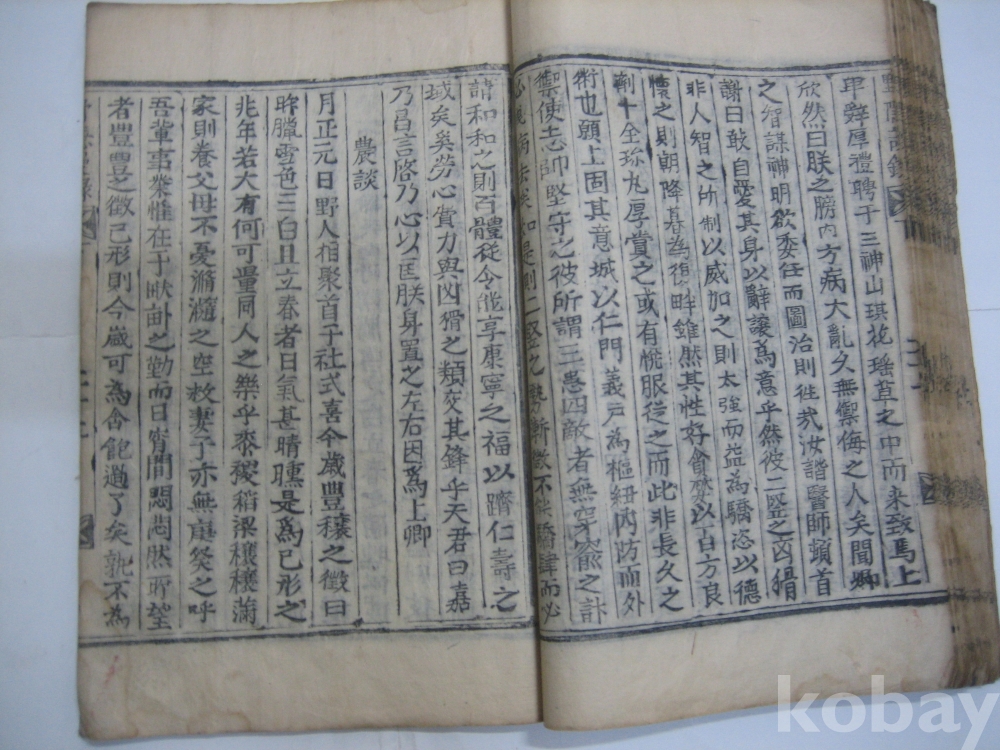 卑辭厚禮聘于三神山琪花瑶草之中而来致馬上
欣然曰朕之膀内方病大亂久無禦侮之人矣聞卿
之縉謀神明欲委任而圖治則徃㢤汝諧醫師頓首
謝曰敢自愛其身以辭讓爲意乎然彼二竪之凶猾
非人智之所制以威加之則太強而益為驕恣以德
懷之則朝降暮為復畔雖然其性好貪婪以百方良
劑十全珎丸厚賞之或有悅服從之而此非長久之
術也願上固其意城以仁門義戶為樞紐內防而外
禦使志帥堅守之彼所謂三愚四敵者無穿窬之計
矣如是則二竪之勢漸微不
請和和之則百體從令能享康寧之福以躋仁壽之
域矣奚勞心費力與凶猾之類交其鋒乎天君曰嘉
乃昌言啓乃心以匡朕身置之左右因爲上卿
農談
月正元日野人相聚首于社式喜今歲豐穰之徵曰
昨臘雪色三白且立春者日氣甚晴曛是爲已形之
兆年若大有何可量同人之樂乎黍稷稻梁穰穰滿
家則養父母不憂滫瀡之空救妻子亦無庚癸之呼
吾輩事業惟在于畎畝之勤而日宵間悶悶然所望
者豐豊之徵已形則今歲可為含飽過了矣孰不為
kobay